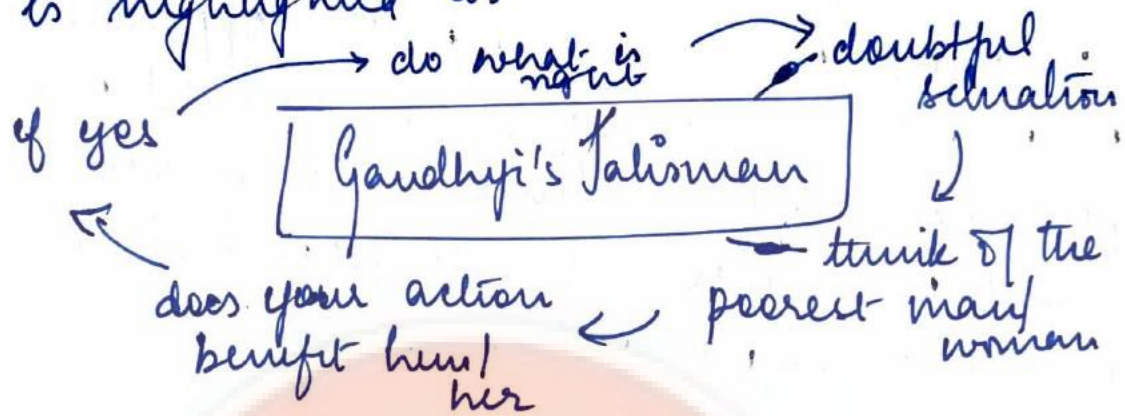 is highlighted as
do what is
right
doubtful
situation
if yes
Gandhiji's Talisman
think of the
poorest man/
woman
does your action
benefit him/
her